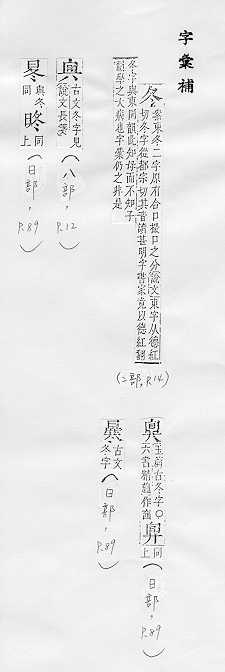 字彙補
冬 案東冬二字原有合口撮口之分說文東字从德紅
切冬字從都宗切其音讀甚明字書家竟以德紅翻
冬字與東同韻此知母而不知子
訓學之大弊也字彙仍之非是
(2部, P.14)
古文冬字見
說文長箋
(八部, P.12)
與冬
同
同
上
(日部, P.89)
玉篇古冬字○
六書精蘊作
同
上
(日部, P.89)
古文
冬字
(日部, P.89)